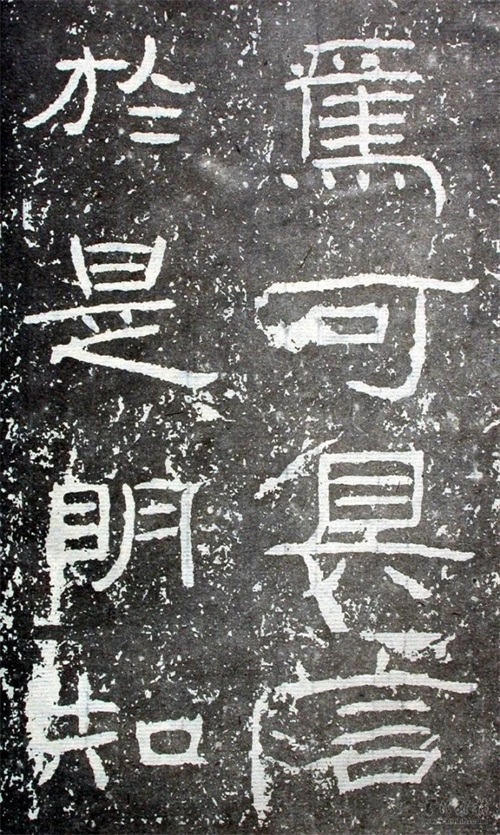 焉可具言
於是明知